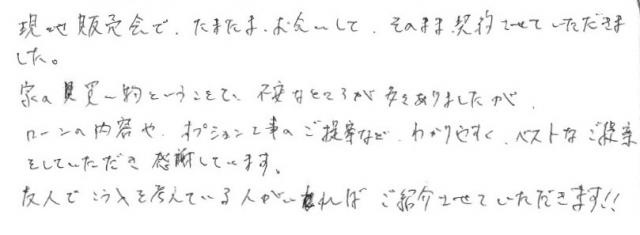 現地販売会で、たまたま、お会いして、そのまま契約させていただきま
した。
家の買い物ということで、不安なところが多々ありましたが、
ローンの内容や、オプション工事のご提案など、わかりやすく、ベストなご提案
をしていただき感謝しています。
友人で こう入を考えている人がいればご紹介させていただきます!!